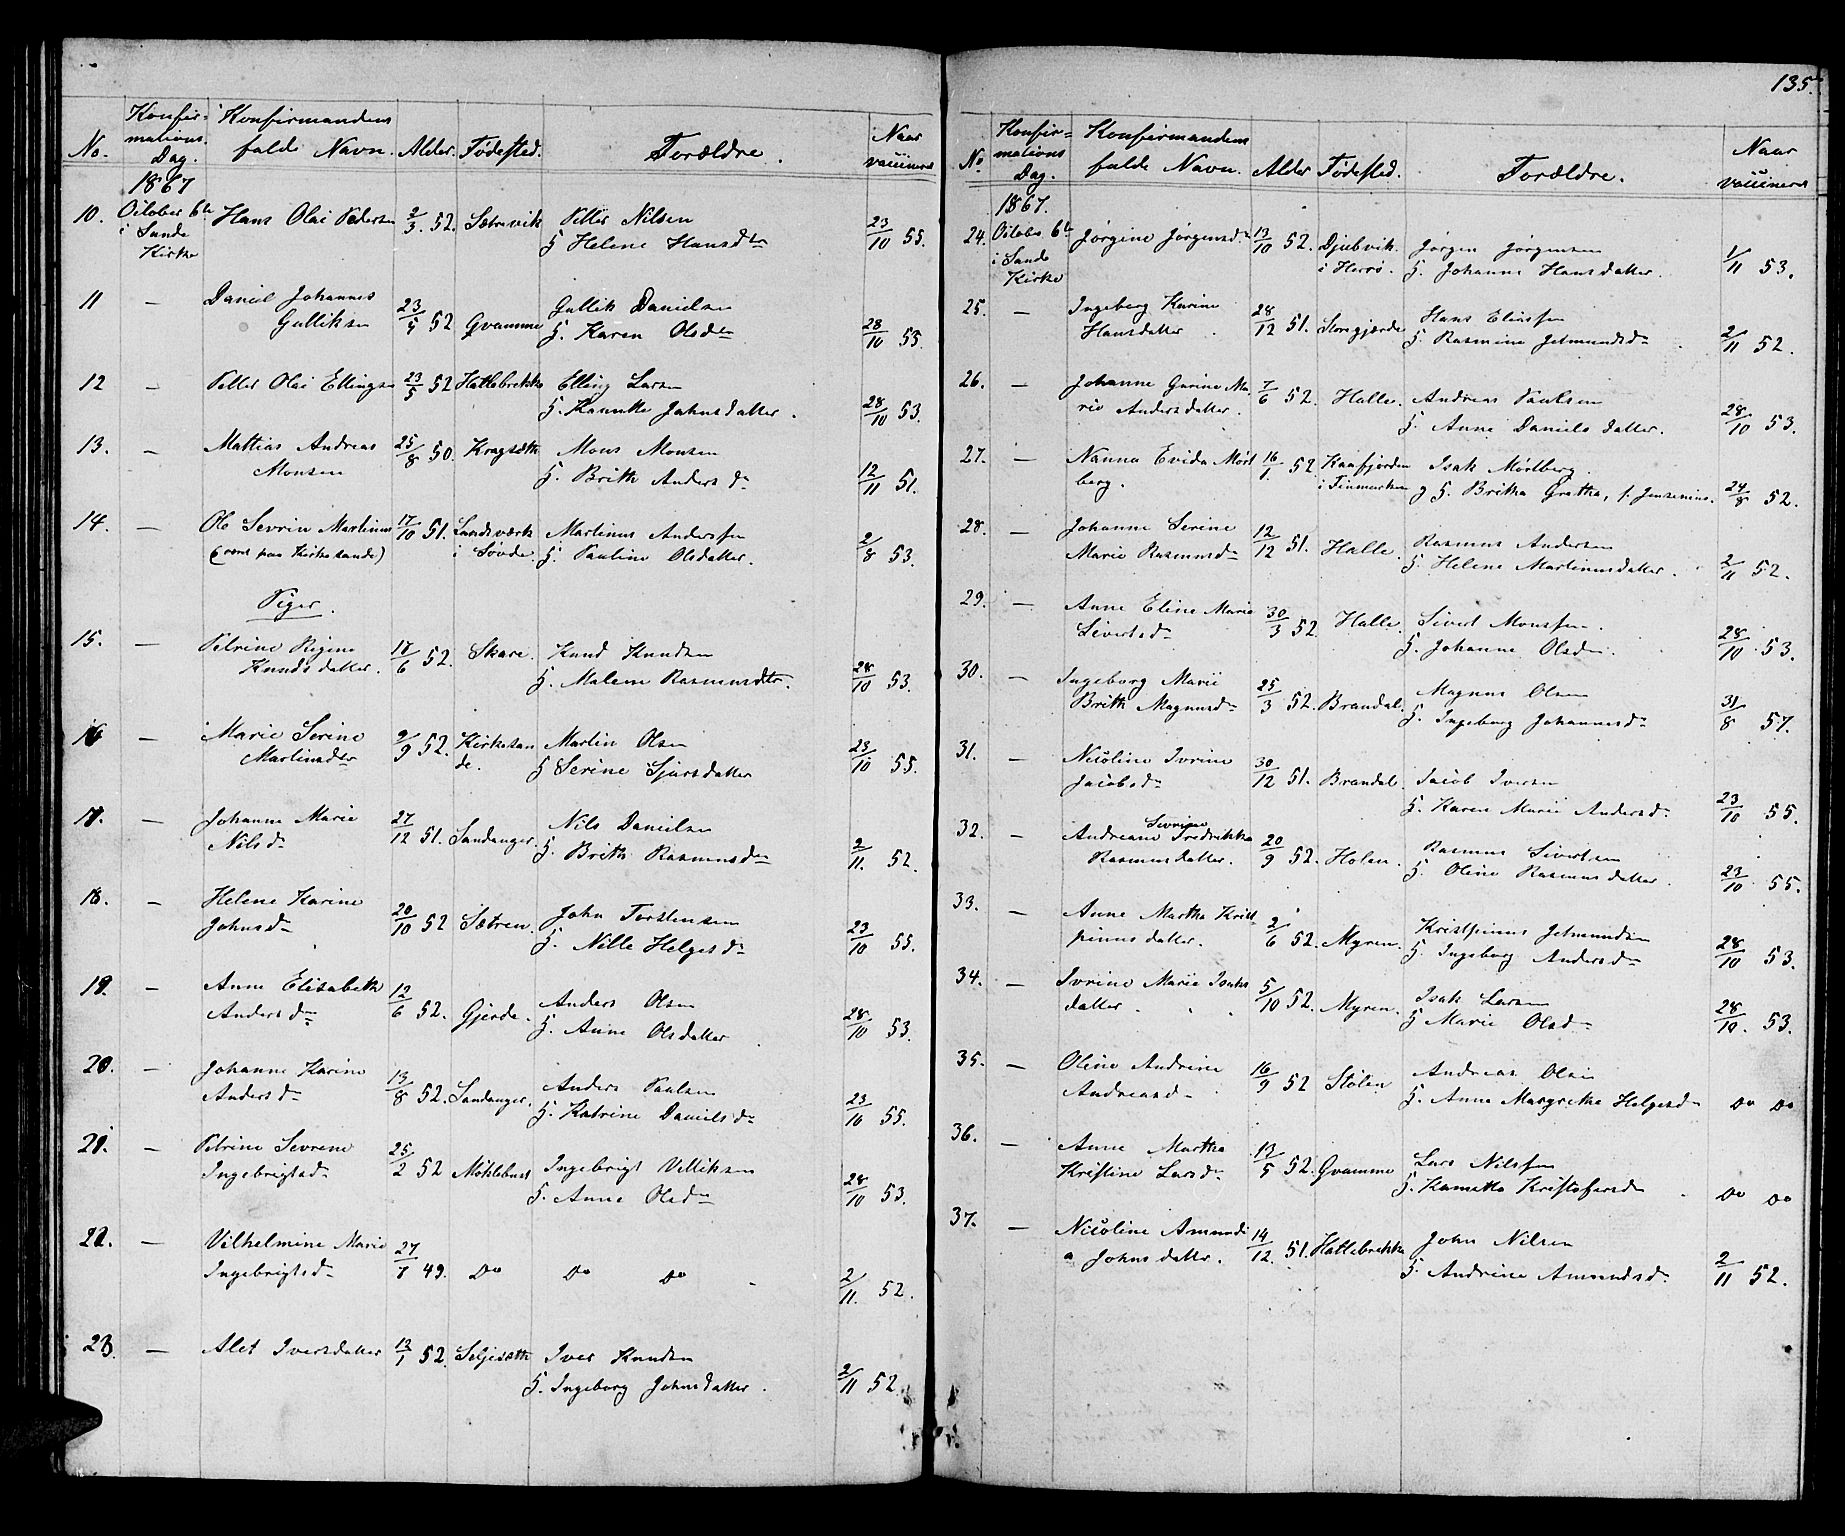 135.
No. Konfirmations Dag. Konfirmandens fulde Navn. Alder. Fødested. Forældre. Naar vaccineret
1867
10. October 6te i Sande Kirke Hans Olai Pedersen 2/3 52. Sætrevik Peder Nilsen
H. Helene Hansdtr 23/10 55.
11 — Daniel Johannes
Gulliksen 23/5 52 Gvamme Gullik Danielsen
H. Karen Olsdr 28/10 55.
12 — Peder Olai Ellingsen 23/5 52 Hatlebrekke Elling Larsen
H. Kanutte Johnsdatter. 28/10 53.
13. — Mattias Andreas
Monsen 25/8 50. Kragseth Mons Monsen
H. Brith Anders dr 12/11 51.
14. — Ole Sevrin Martinus
(paa Kirkesande) 17/10 51. i Søvde Martinus Andersen
H. Pauline Olsdatter. 2/8 53.
Piger.
15. — Petrine Regine
Knudsdatter. 18/6 52. Skare. Knud Knudsen
H. Malene Rasmusdtr. 28/10 53.
16 — Marie Serine
Martinsdtr 9/9 52. Kirkesande. Martin Olsen
H Serine Sjursdatter 23/10 55.
17. — Johanne Marie
Nilsd 27/12 51. Sandanger. Nils Danielsen
H. Brith Rasmusdr 2/11. 52.
18. — Helene Karine
Johnsd 20/10 52 Sætren. John Torstensen
H. Nille Helgesdr 23/10 55.
19. — Anne Elisabeth
Andersdr 12/6 52. Gjerde. Anders Olsen
H. Anne Olsdatter 28/10 53.
20. — Johanne Karine
Andersdr 13/8 52. Sandanger. Anders Paulsen
H. Katrine Danielsdr 23/10 55.
21. — Petrine Sevrene
Ingebrigtsdr 25/2 52 Møklebust Ingebrigt Villiksen
H. Anne Olsdr 28/10 53.
22. — Vilhelmine Marie
Ingebrigtsdr 27/7 49. Do Do Do 2/11. 52.
23. — Alet Iversdatter 13/1 52. Seljeseth Iver Knudsen
H. Ingeborg Johnsdatter. 2/11 52.
No Konfirmations Dag. Konfirmandens fulde Navn. Alder Fødested. Forældre. Naar vaccineret
1867.
24. October 6te i Sande Kirke Jørgine Jørgensdr 13/10 52. Djubvik i Herrø. Jørgen Jørgensen
H. Johanne Hansdatter. 1/11 53.
25. — Ingeborg Karine
Hansdatter 28/12 51. Storegjærde Hans Eliassen
H. Rasmine Jetmundsdr 2/11 52.
26. — Johanne Gurine Marie Andersdatter. 7/6 52. Halle. Andreas Paulsen
H. Anne Danielsdatter. 28/10 53.
27. — Nanna Evida Mørtberg. 16/1 52 Kaafjorden i Finmarken Isak Mørtberg.
og H. Britha Gretha, f. Jensenius. 24/8 52.
28. — Johanne Serine
Marie Rasmusdr 12/12 51. Halle. Rasmus Andersen
H. Helene Martinusdatter. 2/11 52.
29. — Anne Eline Marie
Sivertsdr 30/3 52. Halle. Sivert Monssen.
H. Johanne Olsdr. 28/10 53.
30. — Ingeborg Marie
Brith Magnusdr 25/3 52. Brandal. Magnus Olsen
H. Ingeborg Johannesdr 31/8 57.
31. — Nicoline Ivrine
Jacobsdr 30/12 51. Brandal. Jacob Iversen
H. Karen Marie Andersdr 23/10 55.
32. — Andreane Sevrine Fredrikke
Rasmusdatter. 20/9 52. Holen. Rasmus Sivertsen
H. Oline Rasmusdatter. 23/10 55.
33. — Anne Martha Kristpinusdatter. 2/6 52. Myren. Kristpinus Jetmundsen
H. Ingeborg Andersdr 28/10 53.
34. — Ivrine Marie Isaksdatter. 5/10 52. Myren. Isak Larsen
H Marie Olsdr 28/10. 53.
35. — Oline Andrine
Andreasdr 16/9 52 Stølen Andreas Olsen
H. Anne Margrethe Helgesdr Do Do
36. — Anne Martha
Kristine Larsdr 12/5 52. Gvamme Lars Nilssen
H. Kanutta Kristofersdr Do Do
37. — Nicoline Amundia Johnsdatter. 14/12. 51. Hatlebrekke John Nilsen
H. Andrine Amundsdr 2/11 52.